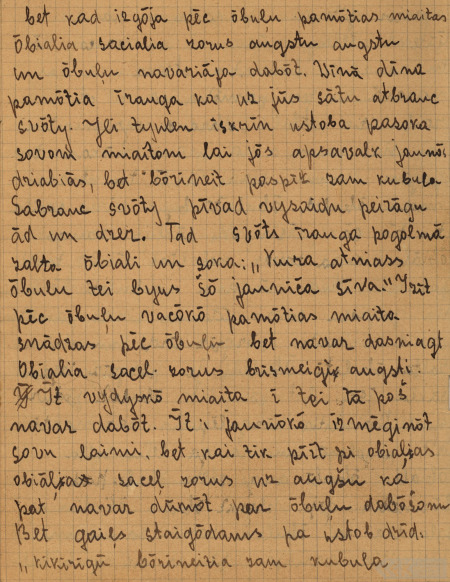 bet kad izgōja pēc ōbuļu pamōtias miaitas
Ōbialia sacialia zorus augstu augstu
un ōbuļu navariāja dabōt. Vīnā dīna
pamōtia īrauga ka uz jūs sātu atbrauc
svōty. Jei tyuleņ īskrīn ustobā pasoka
sovom miaitom lai jōs apsavalk jaunōs
driabiās, bet bōrineit paspīž zam kubula
Sabrauc svōty pīvad vysaidu peirāgu
ād un dzer. Tad svōts īrauga pogolmā
zalta ōbiali un soka: „Kura atniass
ōbuļu tei byus šō jauniča sīva." Izīt
pēc ōbuļu vacōkō pamōtias miaita
snādzas pēc ōbuļu bet navar dasniagt
Obialia sacel zorus brismeigi augsti.
Īt vydyskō miaita i tei tā poš
navar dabōt. Īt i jaunōkō izmēginōt
sovu laimi, bet kai tik pīīt pi obialias
obialias sacel zorus uz augšu ka
pat navar dūmōt par ōbuļu dabōšonu
Bet gaiļs staigōdams pa ustob drīd:
„kikirīgū bōrineitia zam kubula